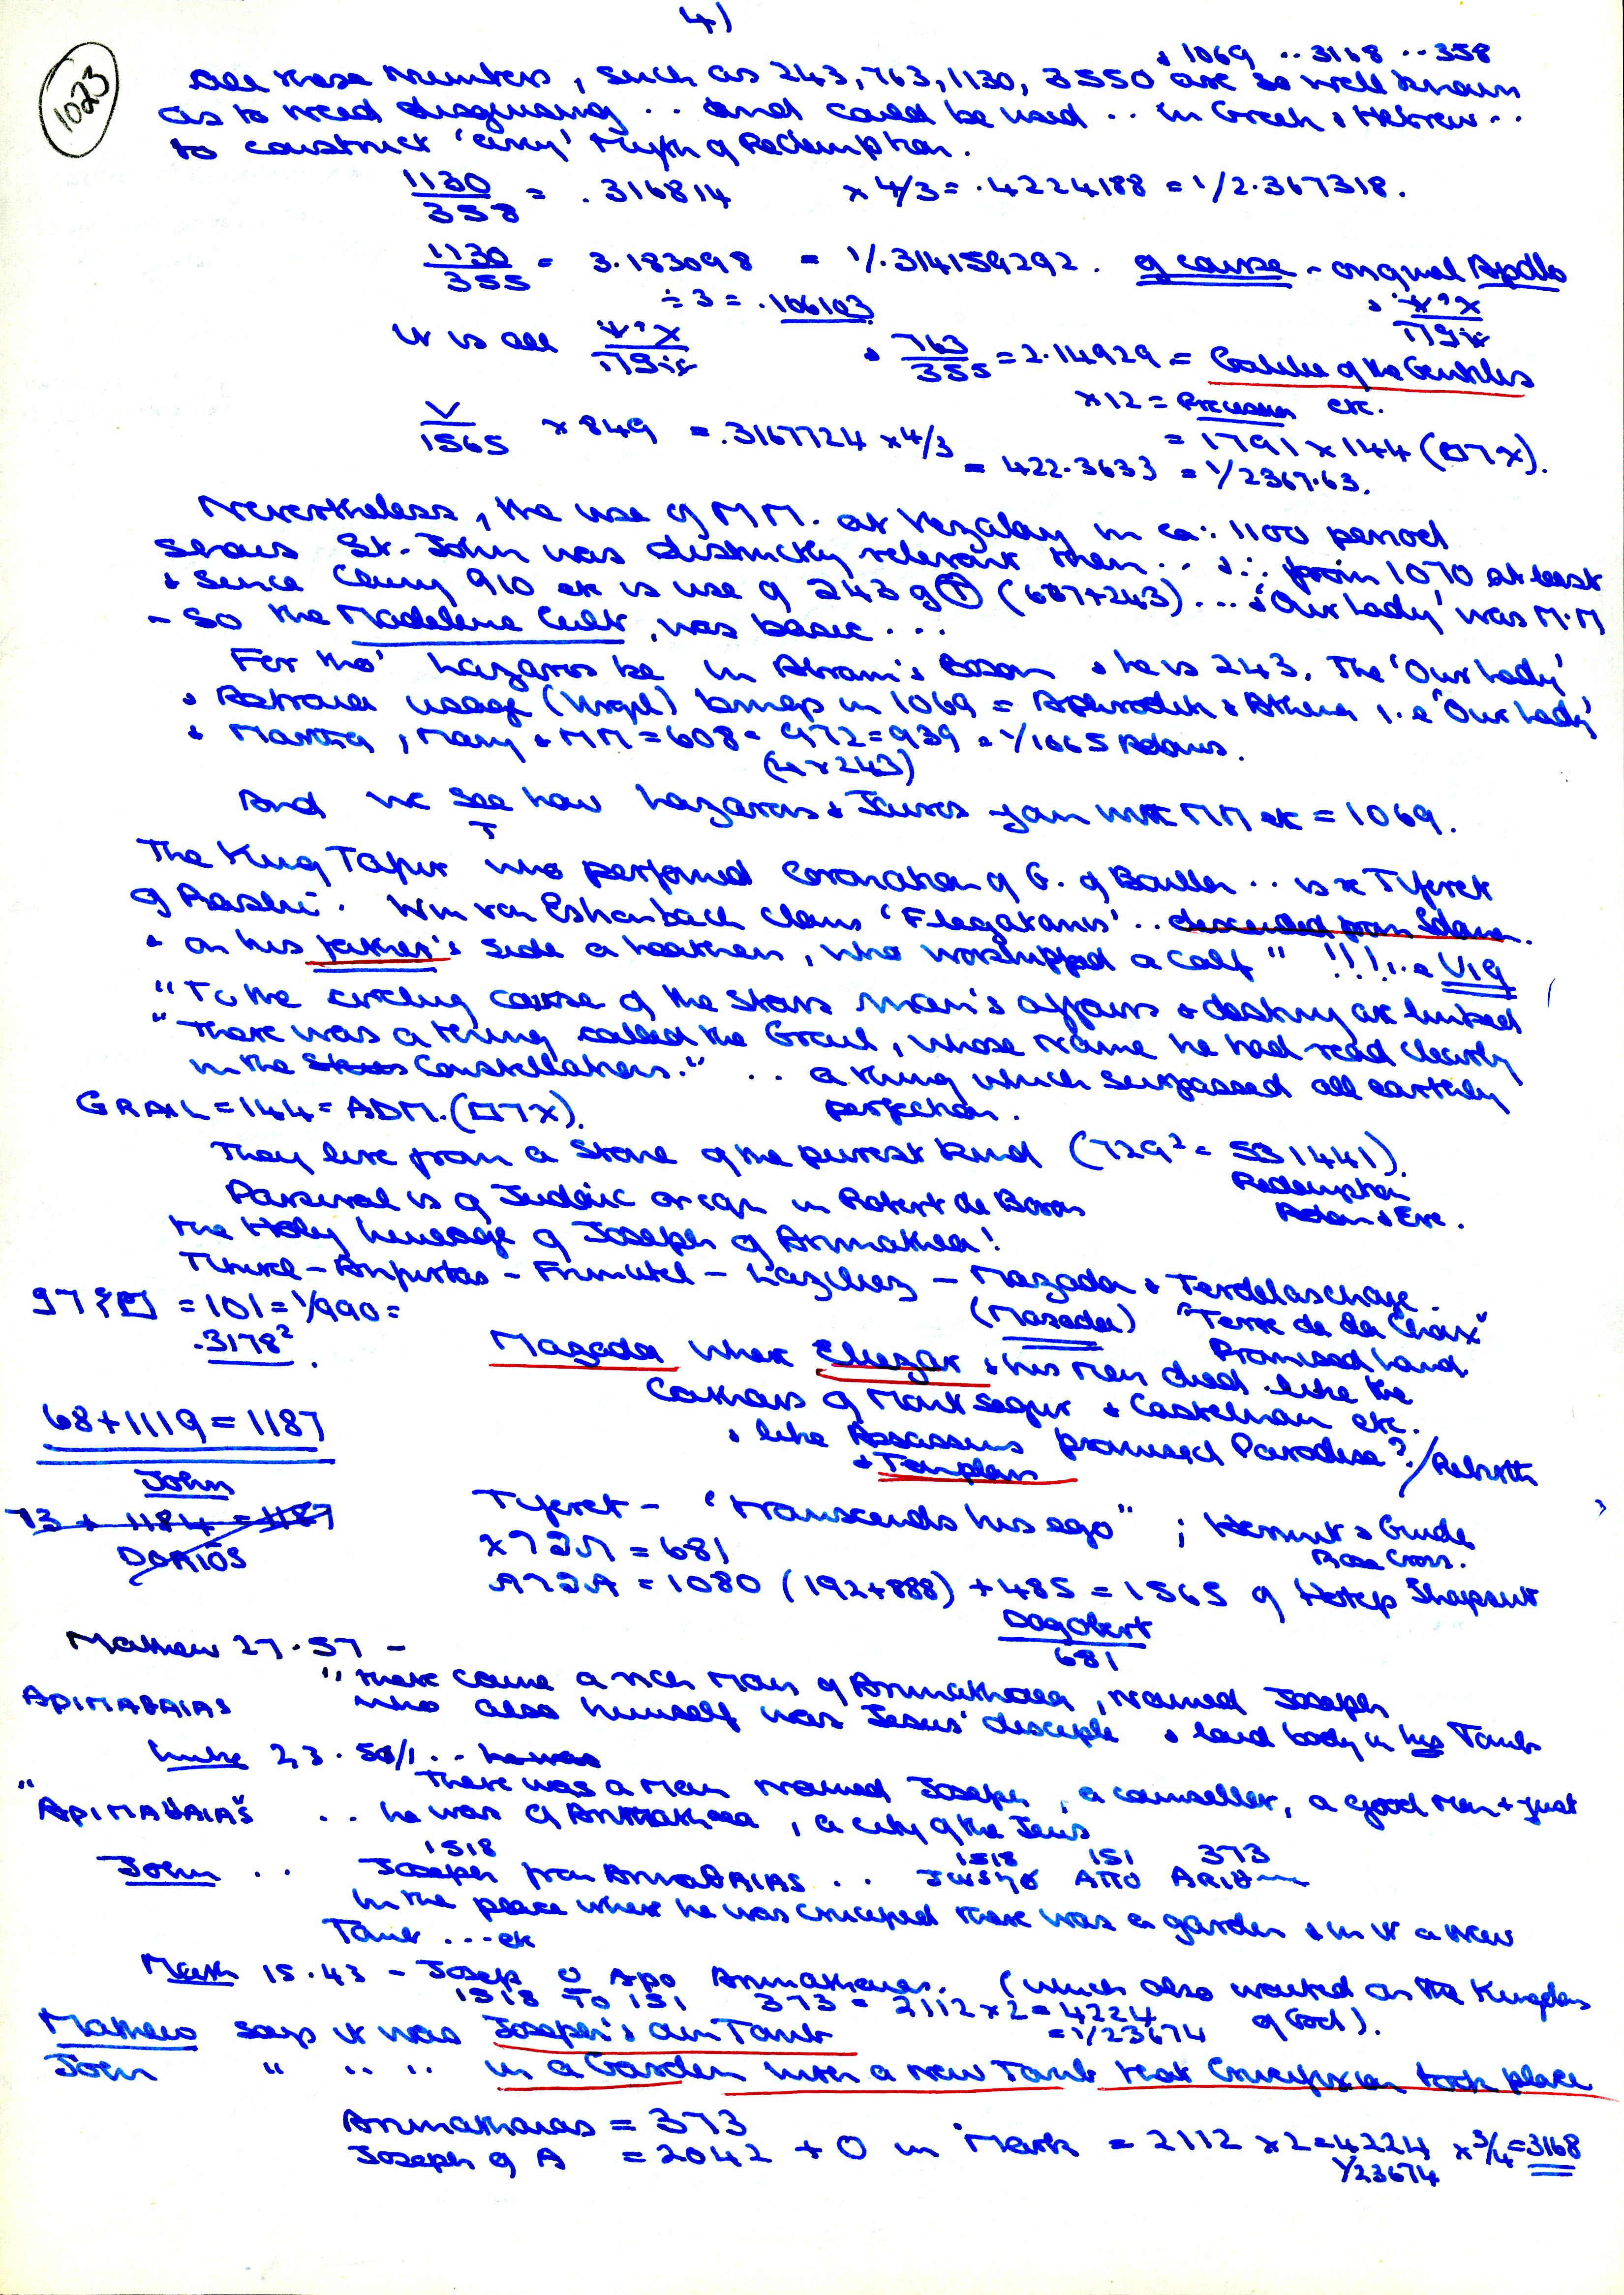 4)
1023
+ 1069 .. 3168 .. 358
All these numbers, such as 243, 763, 1130, 3550 are so well known
as to need disguising .. and could be used .. in Greek & Hebrew ..
to construct 'any' Myth of Redemption.
1130/358 = .316814 x 4/3 = .4224188 = 1/2.367318.
1130/355 = 3.183098 = 1/.314159292. of course - original Apollo
÷ 3 = .106103
It is all
+ 763/355 = 2.14929 = Galilee of the Gentiles
x 12 = Precession etc.
= 1791 x 144 (םדא).
√/1565 x 849 = .3167724 x 4/3 = 422.3633 = 1/2367.63.
Nevertheless, the use of MM. at Vezalay in ca: 1100 period
shows St. John was distinctly relevant then .. & ∴ from 1070 at least
& since Cluny 910 etc is use of 243 of (T) (687+243) ... & 'Our Lady' was M.M
- So the Madelene Cult, was basic ...
For tho' Lazarus be in Abram's Bosom & he is 243. The 'Our Lady'
& Astraea usage (Virgil) brings in 1069 = Aphrodite & Athena i.e 'Our Lady'
& Martha, Mary & MM = 608 = 972 = 939 = 1/1065 Adonis.
(4 x 243)
And we see how Lazarus & Jesus join with MM etc = 1069.
The King Tafur who performed Coronation of G. of Bouillon .. is a Tyferet
of Rashi. Wm von Eshenbach claims 'Flegatanis' .. descended from Solomon.
& on his father's side a heathen, who worshipped a calf" !!! i.e V19
"To the circling course of the stars man's affairs & destiny are linked
"There was a thing called the Grail, whose name he had read clearly
in the Stars Constellations." .. a thing which surpassed all earthly
perfection.
GRAIL = 144 = ADM. (םדא).
They live from a Stone of the purest kind (729² = 531441).
Redemption
Adam & Eve.
Parsival is of Judaic origin in Robert de Boron
the Holy lineage of Joseph of Arimathea!
Titurel - Anfortas - Frimutel - Laziliez - Mazadan & Terdelaschoye.
(Masada) "Terre de la Choix"
Promised Land.
= 101 = 1/990 =
.3178².
Mazada where Eliezar & his men died like the
Cathars of Mont Segur & Castelnau etc.
& like Assassins promised Paradise? / Rebirth
& Templars
68 + 1119 = 1187
John
73 + 1184 = 1187
DARIOS
Tyferet - 'transcends his ego" ; Hermit & Guide
Rose Cross.
= 681
= 1080 (192+888) + 485 = 1565 of Hotep Shapsut
Dagobert
681
Mathew 27.57 -
"there came a rich man of Arimathaea, named Joseph
ΑΡΙΜΑΘΑΙΑΣ who also himself was Jesus' disciple & laid body in his Tomb
Luke 23.50/1 .. he was
There was a man named Joseph, a counsellor, a good man + just
"ΑΡΙΜΑΘΑΙΑΣ .. he was of Arimathaea, a city of the Jews
1518 1518 151 373
John .. Joseph from ArimaΘΑΙΑΣ .. Ιωσηφ ΑΠΟ ΑRΙΘ
In the place where he was crucified there was a garden & in it a new
Tomb ... etc
Mark 15.43 - Josep O Apo Arimathaias. (which also waited on the Kingdom
1518 70 151 373 = 2112 x 2 = 4224 of God).
= 1/23674
Mathew says it was Joseph's own Tomb
John " " " in a Garden with a new Tomb that Crucifixion took place
Arimathaias = 373
Joseph of A = 2042 + O in Mark = 2112 x 2 = 4224 x 3/4 = 3168
1/23674